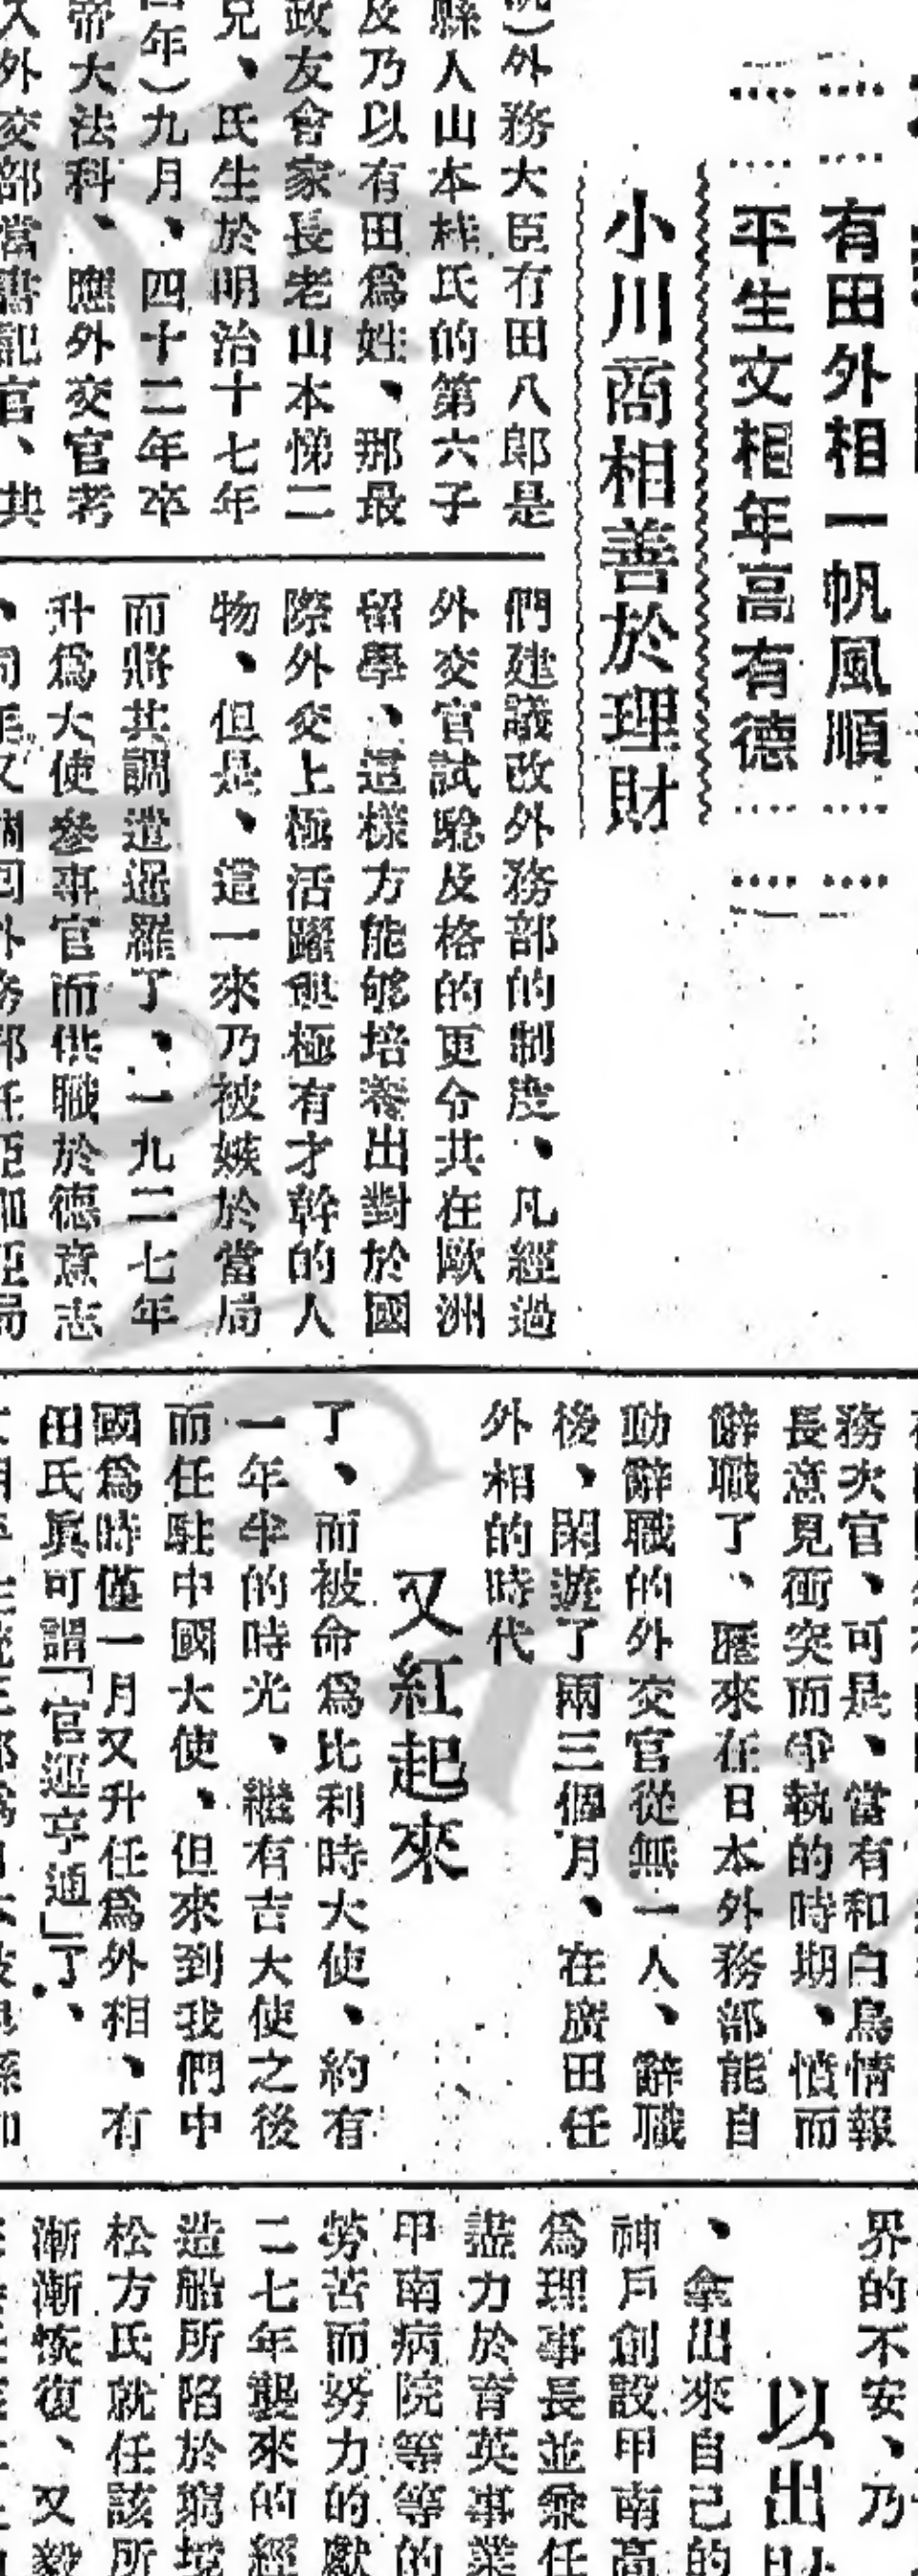 有田外相一帆風順
平生文相年高有德
小川商相善於理財
外務大臣有田八郎是
縣人山本桂氏的第六子
及乃以有田爲姓、那最
政友會家長老山本悌二
兄、氏生於明治十七年
年)九月、四十二年卒
帝大法科、應外交官考
外交部當書記官、
們建議改外務部的制度、凡經過
外交官試驗及格的更令共在歐洲
留學、這樣方能够培養出對於國
際外交上極活躍與極有才幹的人
物、但是、這一來乃被嫉於當局
而將其調遣暹羅了、一九二七年
升爲大使參事官而供職於德意志
務次官、可是、當有和白鳥情報
長意見衝突而爭執的時期、憤而
辭職了、匯來在日本外務部能自
動辭職的外交官從無一人、辭職
後、閑遊了兩三個月、在廣田任
外相的時代
又紅起來
了、而被命爲比利時大使、約有
一年半的時光、繼有吉大使之後
而任駐中國大使、但來到我們中
國爲時僅一月又升任爲外相、有
田氏眞可謂「官運亨通」了、
界的不安、乃
以出
、拿出來自己的
神戶創設甲南高
爲理事長並兼任
盡力於育英事業
甲南病院等等的
勞苦而努力的獻
二七年襲來的經
造船所陷於窮境
松方氏就任該所
漸漸恢復、又毅